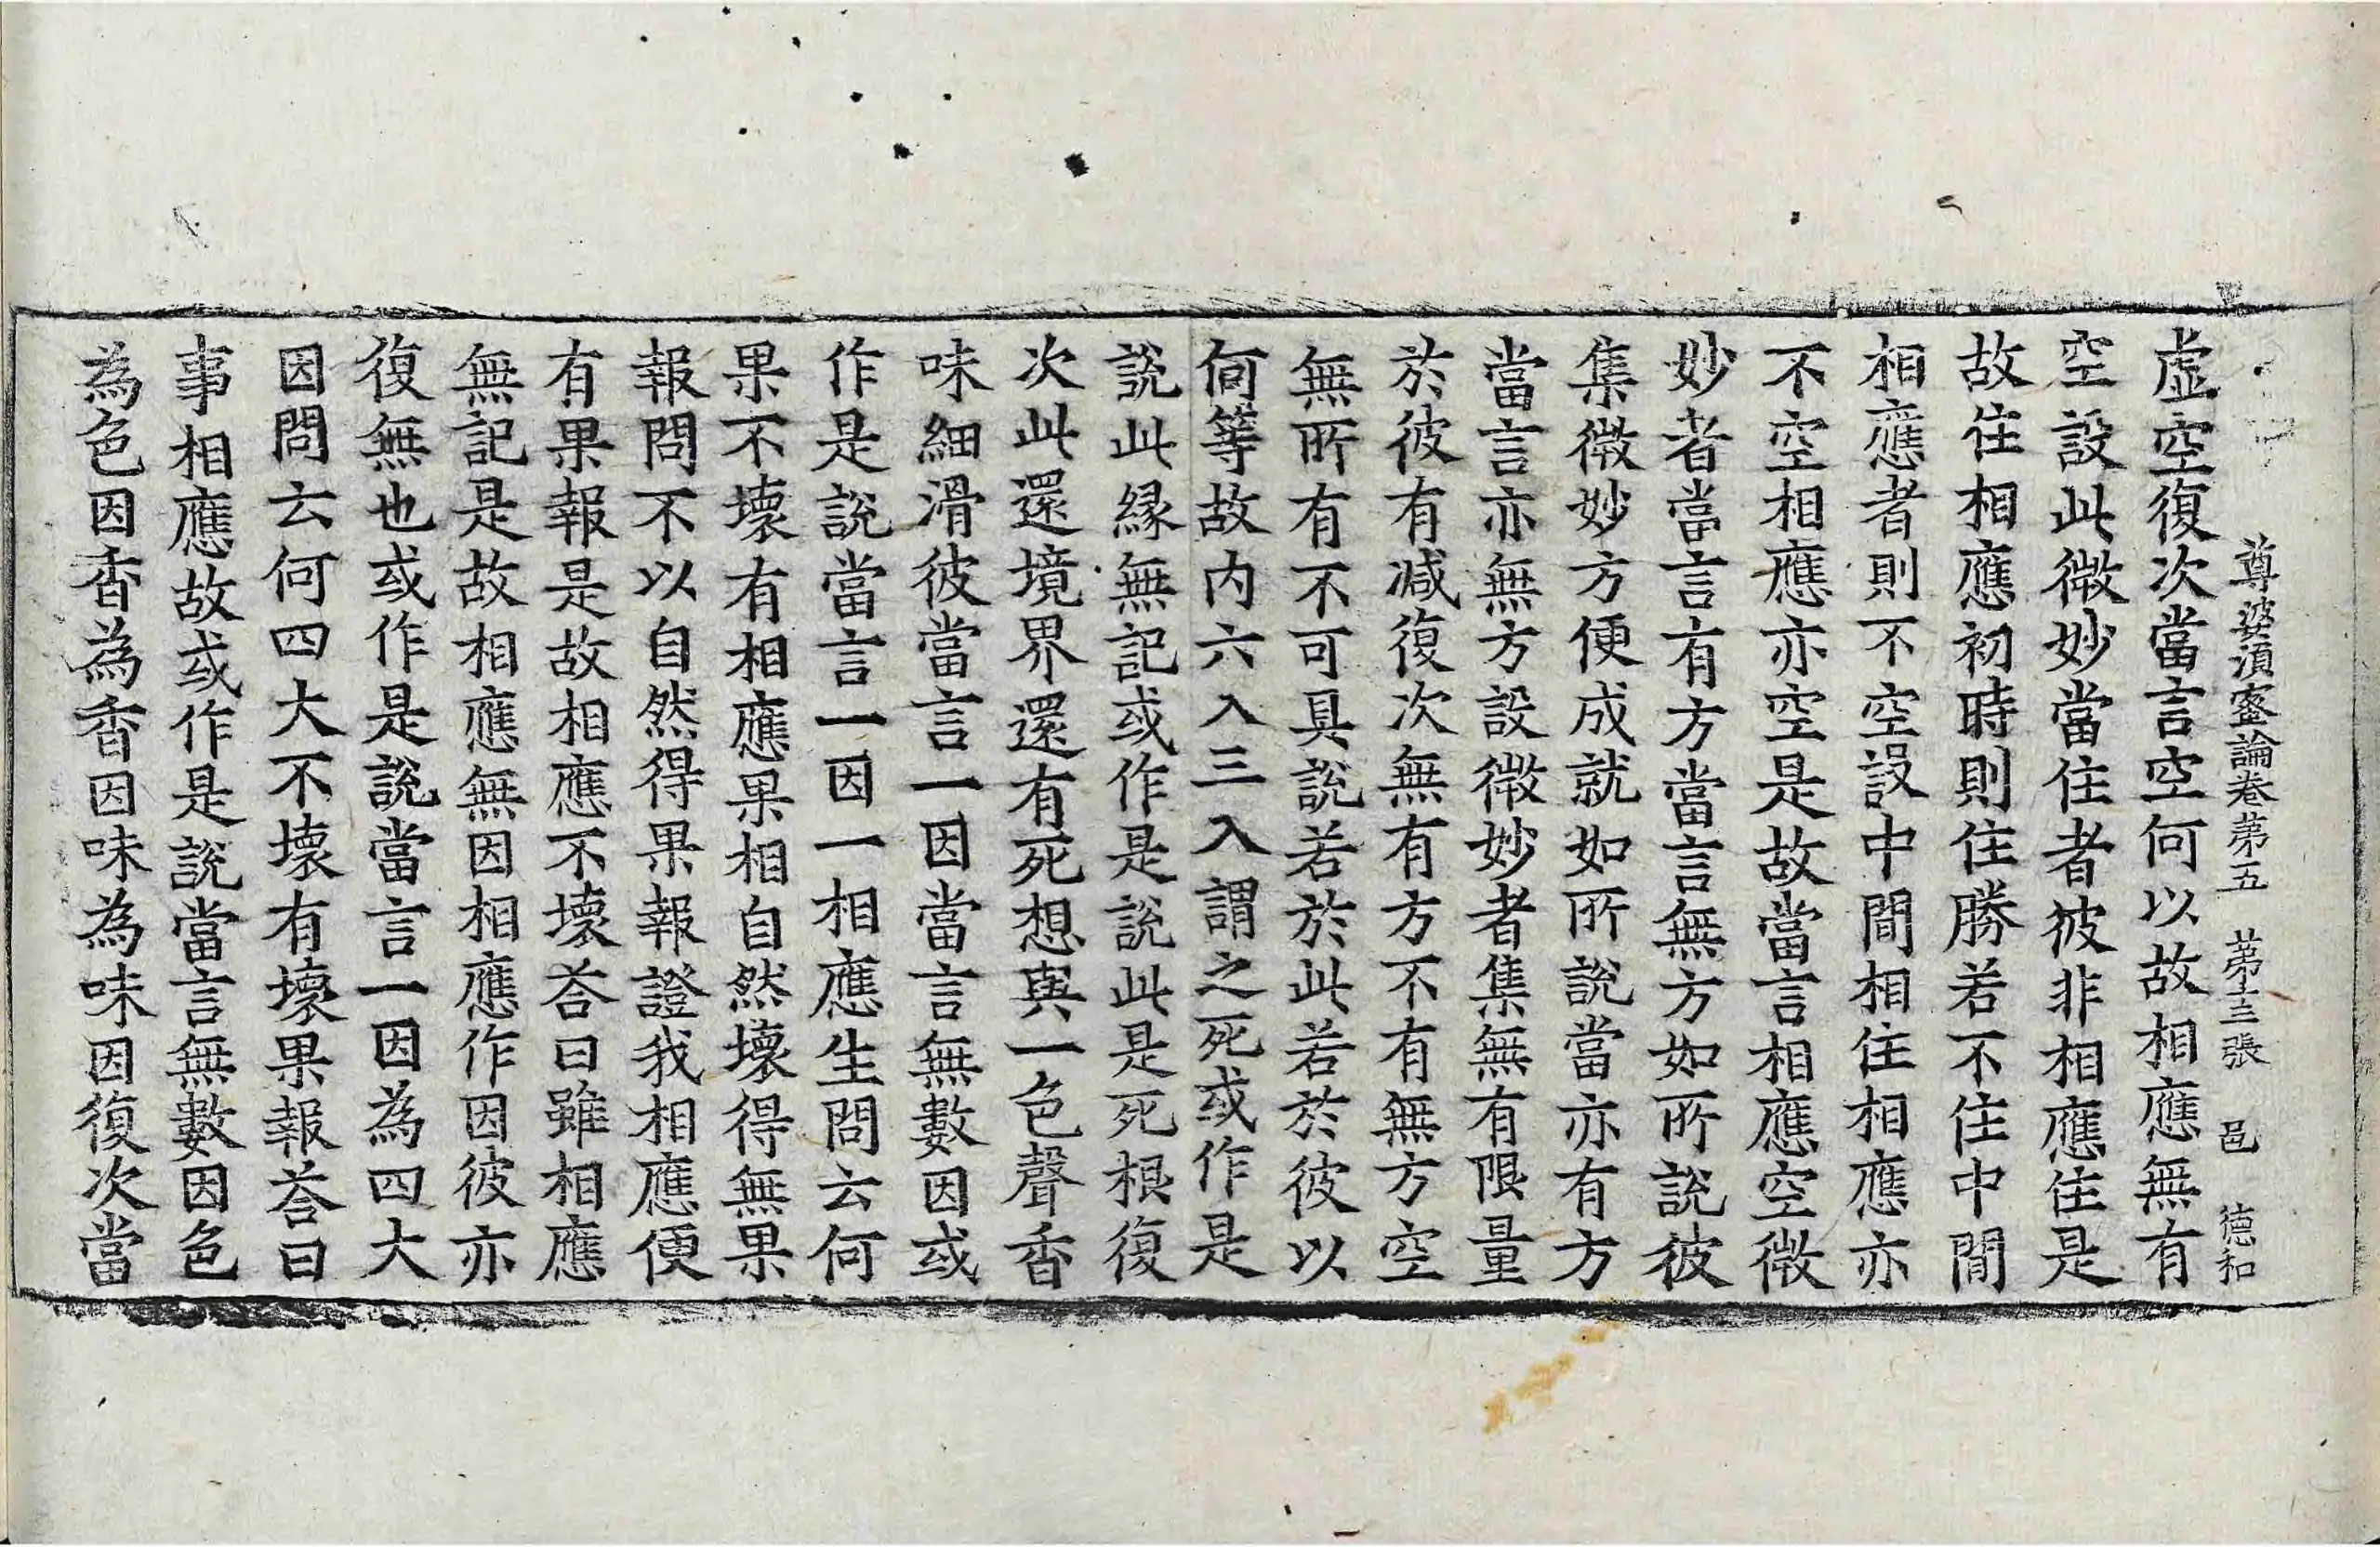 尊婆須蜜論卷苐五 苐十三張 邑 德和
虛空復次當言空何以故相應無有
空設此微妙當住者彼非相應住是
故住相應初時則住勝若不住中間
相應者則不空設中間相住相應亦
不空相應亦空是故當言相應空微
妙者當言有方當言無方如所說彼
集微妙方便成就如所說當亦有方
當言亦無方設微妙者集無有限量
於彼有減復次無有方不有無方空
無所有不可具說若於此若於彼以
何等故内六入三入謂之死或作是
說此緣無記或作是說此是死根復
次此還境界還有死想與一色聲香
味細滑彼當言一因當言無數因或
作是說當言一因一相應生問云何
果不壞有相應果相自然壞得無果
報問不以自然得果報證我相應便
有果報是故相應不壞荅曰雖相應
無記是故相應無因相應作因彼亦
復無也或作是說當言一因為四大
因問云何四大不壞有壞果報荅曰
事相應故或作是說當言無數因色
為色因香為香因味為味因復次當